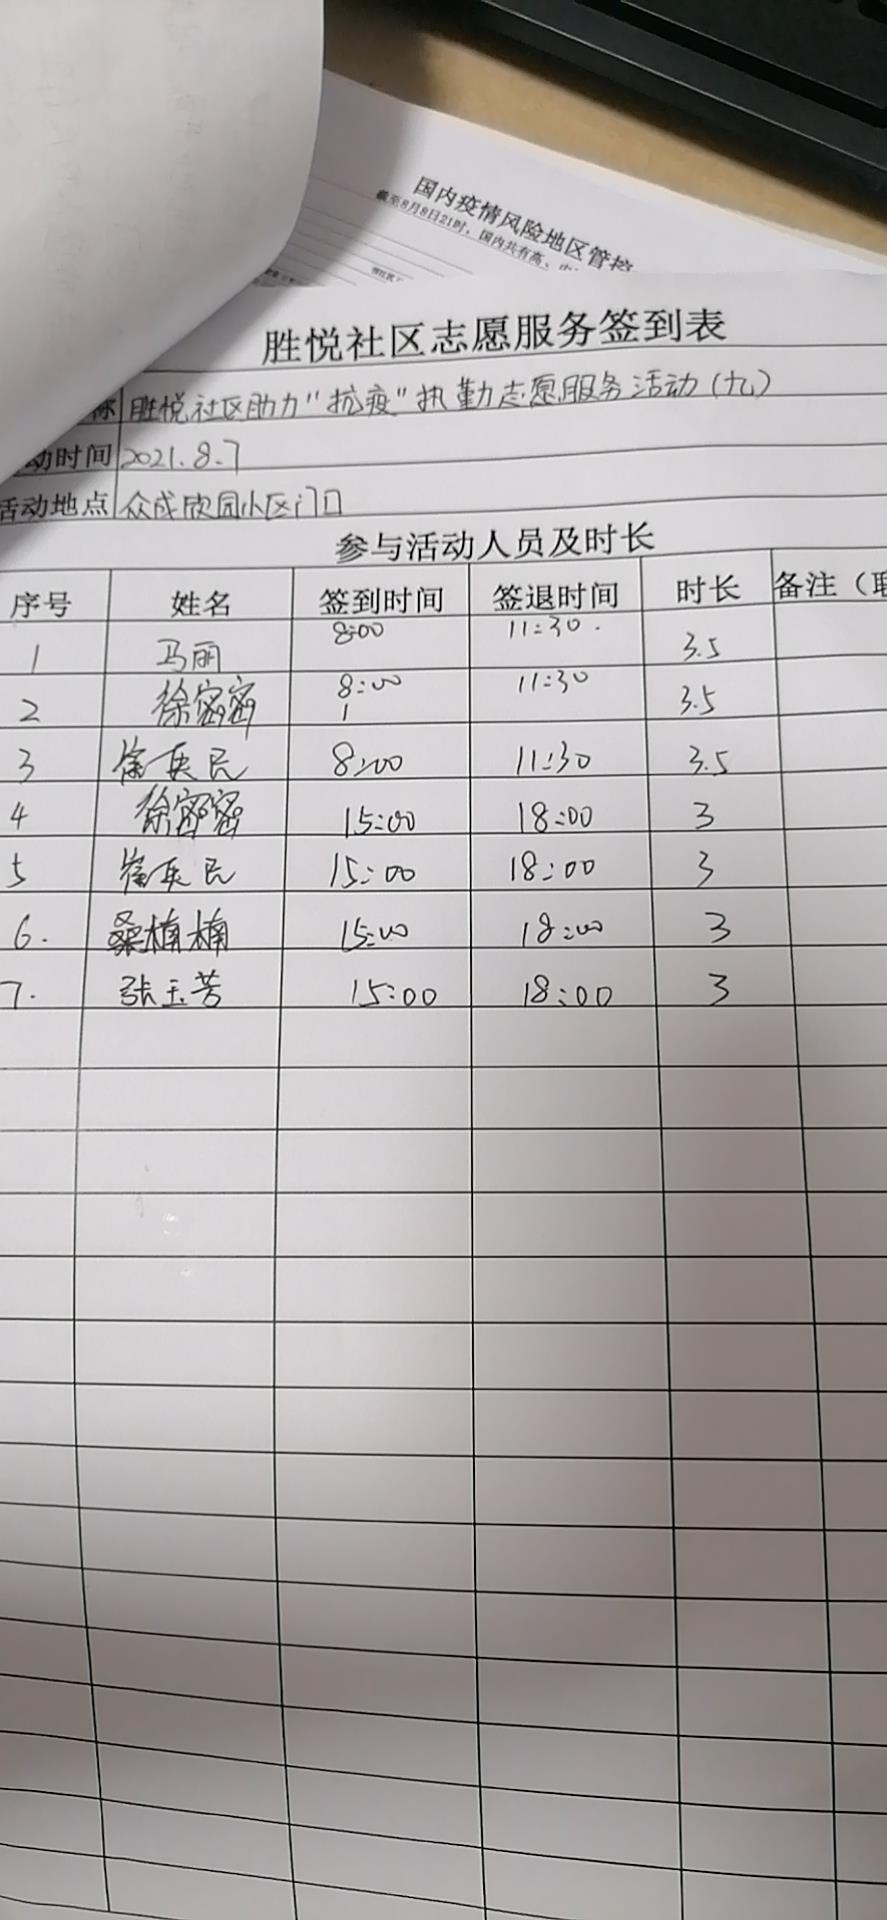 国内疫情风险地区管控
截至8月8日21时，国内共有高、中
胜悦社区志愿服务签到表
称 胜悦社区助力"抗疫"执勤志愿服务活动(九)
动时间 2021.8.7
活动地点 众成欣园小区门口
参与活动人员及时长
序号 姓名 签到时间 签退时间 时长 备注（联
1 马丽 8:00 11:30. 3.5
2 徐密密 8:00 11:30 3.5
3 崔兵民 8:00 11:30 3.5
4 徐密密 15:00 18:00 3
5 崔兵民 15:00 18:00 3
6. 桑楠楠 15:00 18:00 3
7. 张玉芳 15:00 18:00 3